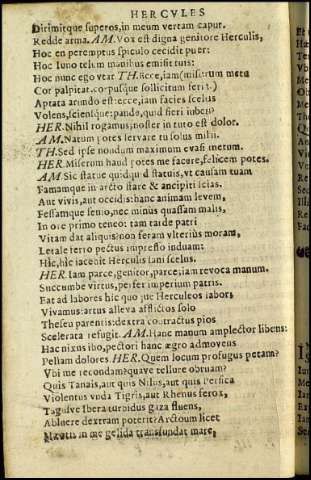 HERCVLES
Dirimitque superos, in meum vertam caput.
Redde arma. AM. Vox est digna genitore Herculis,
Hoc en peremptus spiculo cecidit puer:
Hoc Iuno telum manibus emisit tuis:
Hoc nunc ego vtar TH. Ecce, iam (miserum metu
Cor palpitat, corpusque sollicitum ferit.)
Aptata arundo est: ecce, iam facies scelus
Volens, sciensque: pande, quid fieri iubes?
HER. Nihil rogamus; noster in tuto est dolor.
AM. Natum potes servare tu solus mihi.
TH. Sed ipse nondum maximum evasi metum.
HER. Miserum haud potes me facere, felicem potes.
AM. Sic statue quidquid statuis, vt causam tuam
Famamque in arcto stare & ancipiti scias.
Aut vivis, aut occidis: hanc animam levem,
Fessamque senio, nec minus quassam malis,
In ore primo teneo: tam tarde patri
Vitam dat aliquis? non feram vlterius moram,
Letale ferro pectus impresso induam:
Hic, hic iacenit Herculis sani scelus.
HER. Iam parce, genitor, parce, iam revoca manum.
Succumbe virtus, perfer imperium patris.
Eat ad labores hic quoque Herculeos labor:
Vivamus: artus alleva afflictos solo
Theseu parentis: dextra contractus pios
Scelerata refugit. AM. Hanc manum amplector libens:
Hac nixus ibo, pectori hanc aegro admovens
Pellam dolores. HER. Quem locum profugus petam?
Vbi me recondam? quave tellure obruam?
Quis Tanais, aut quis Nilus, aut quis Persica
Violentus vnda Tigris, aut Rhenus ferox,
Tagusve Ibera turbidus gaza fluens,
Abluere dextram poterit? Arctoum licet
Mæotis in me gelida transfundat mare,